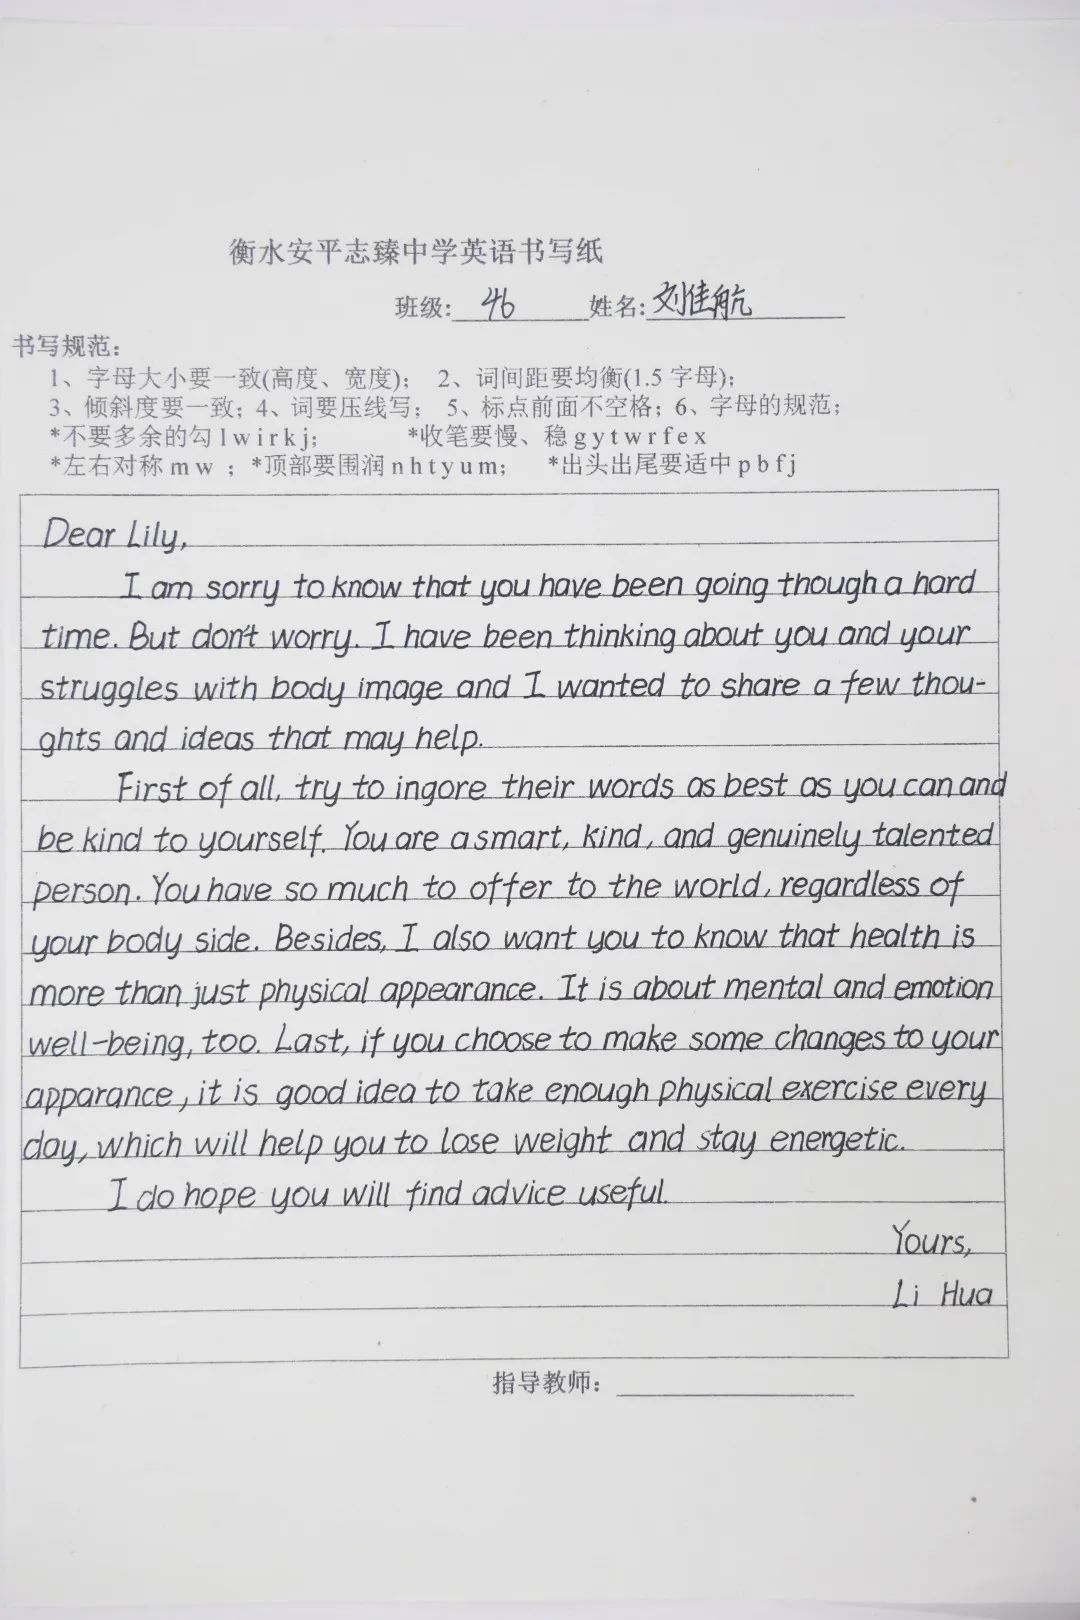 衡水安平志臻中学英语书写纸
班级: 46 姓名: 刘佳航
书写规范：
1、字母大小要一致(高度、宽度)； 2、词间距要均衡(1.5 字母)；
3、倾斜度要一致；4、词要压线写； 5、标点前面不空格；6、字母的规范；
*不要多余的勾 l w i r k j； *收笔要慢、稳 g y t w r f e x
*左右对称 m w ；*顶部要围润 n h t y u m； *出头出尾要适中 p b f j
Dear Lily,
I am sorry to know that you have been going though a hard
time. But don't worry. I have been thinking about you and your
struggles with body image and I wanted to share a few thou-
ghts and ideas that may help.
First of all, try to ingore their words as best as you can and
be kind to yourself. You are a smart, kind, and genuinely talented
person. You have so much to offer to the world, regardless of
your body side. Besides, I also want you to know that health is
more than just physical appearance. It is about mental and emotion
well-being, too. Last, if you choose to make some changes to your
apparance, it is good idea to take enough physical exercise every
day, which will help you to lose weight and stay energetic.
I do hope you will find advice useful.
Yours,
Li Hua
指导教师：